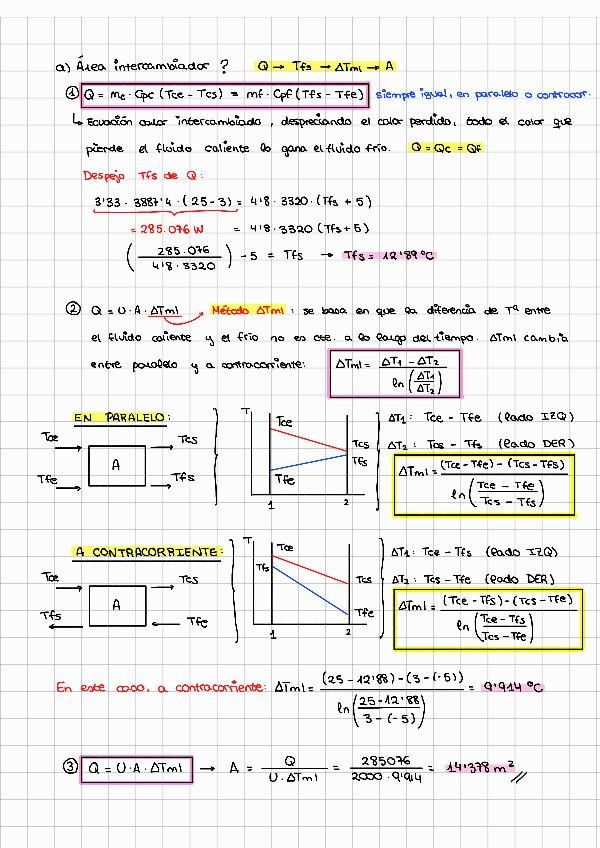 a) Área intercambiador ? Q → Tfs → ΔTml → A
① Q = mc · Cpc (Tce - Tcs) = mf · Cpf (Tfs - Tfe) siempre igual, en paralelo o contracor.
↳ Ecuación calor intercambiado, despreciando el calor perdido, todo el calor que
pierde el fluido caliente lo gana el fluido frío. Q = Qc = Qf
Despejo Tfs de Q:
3'33 · 3887'4 · (25 - 3) = 4'8 · 3320 · (Tfs + 5)
= 285.076 W = 4'8 · 3320 (Tfs + 5)
(285.076 / 4'8 · 3320) - 5 = Tfs → Tfs = 12'89 °C
② Q = U · A · ΔTml → Método ΔTml : se basa en que la diferencia de Tª entre
el fluido caliente y el frío no es cte. a lo largo del tiempo. ΔTml cambia
entre paralelo y a contracorriente: ΔTml = (ΔT1 - ΔT2) / ln (ΔT1 / ΔT2)
EN PARALELO:
Tce Tcs
A
Tfe Tfs
T Tce Tcs Tfs Tfe 1 2
ΔT1 : Tce - Tfe (lado IZQ)
ΔT2 : Tcs - Tfs (lado DER)
ΔTml = ((Tce - Tfe) - (Tcs - Tfs)) / ln (Tce - Tfe / Tcs - Tfs)
A CONTRACORRIENTE:
Tce Tcs
A
Tfs Tfe
T Tce Tfs Tcs Tfe 1 2
ΔT1 : Tce - Tfs (lado IZQ)
ΔT2 : Tcs - Tfe (lado DER)
ΔTml = ((Tce - Tfs) - (Tcs - Tfe)) / ln (Tce - Tfs / Tcs - Tfe)
En este caso, a contracorriente: ΔTml = ((25 - 12'88) - (3 - (-5))) / ln (25 - 12'88 / 3 - (-5)) = 9'914 °C
③ Q = U · A · ΔTml → A = Q / U · ΔTml = 285076 / 2000 · 9'914 = 14'378 m²